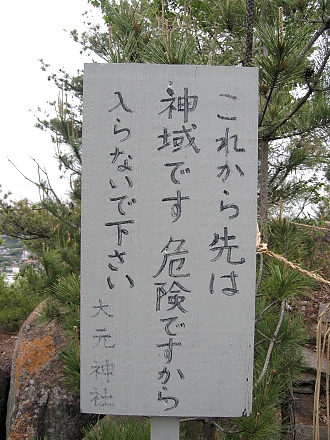 これから先は
神域です 危険ですから
入らないで下さい
大元神社